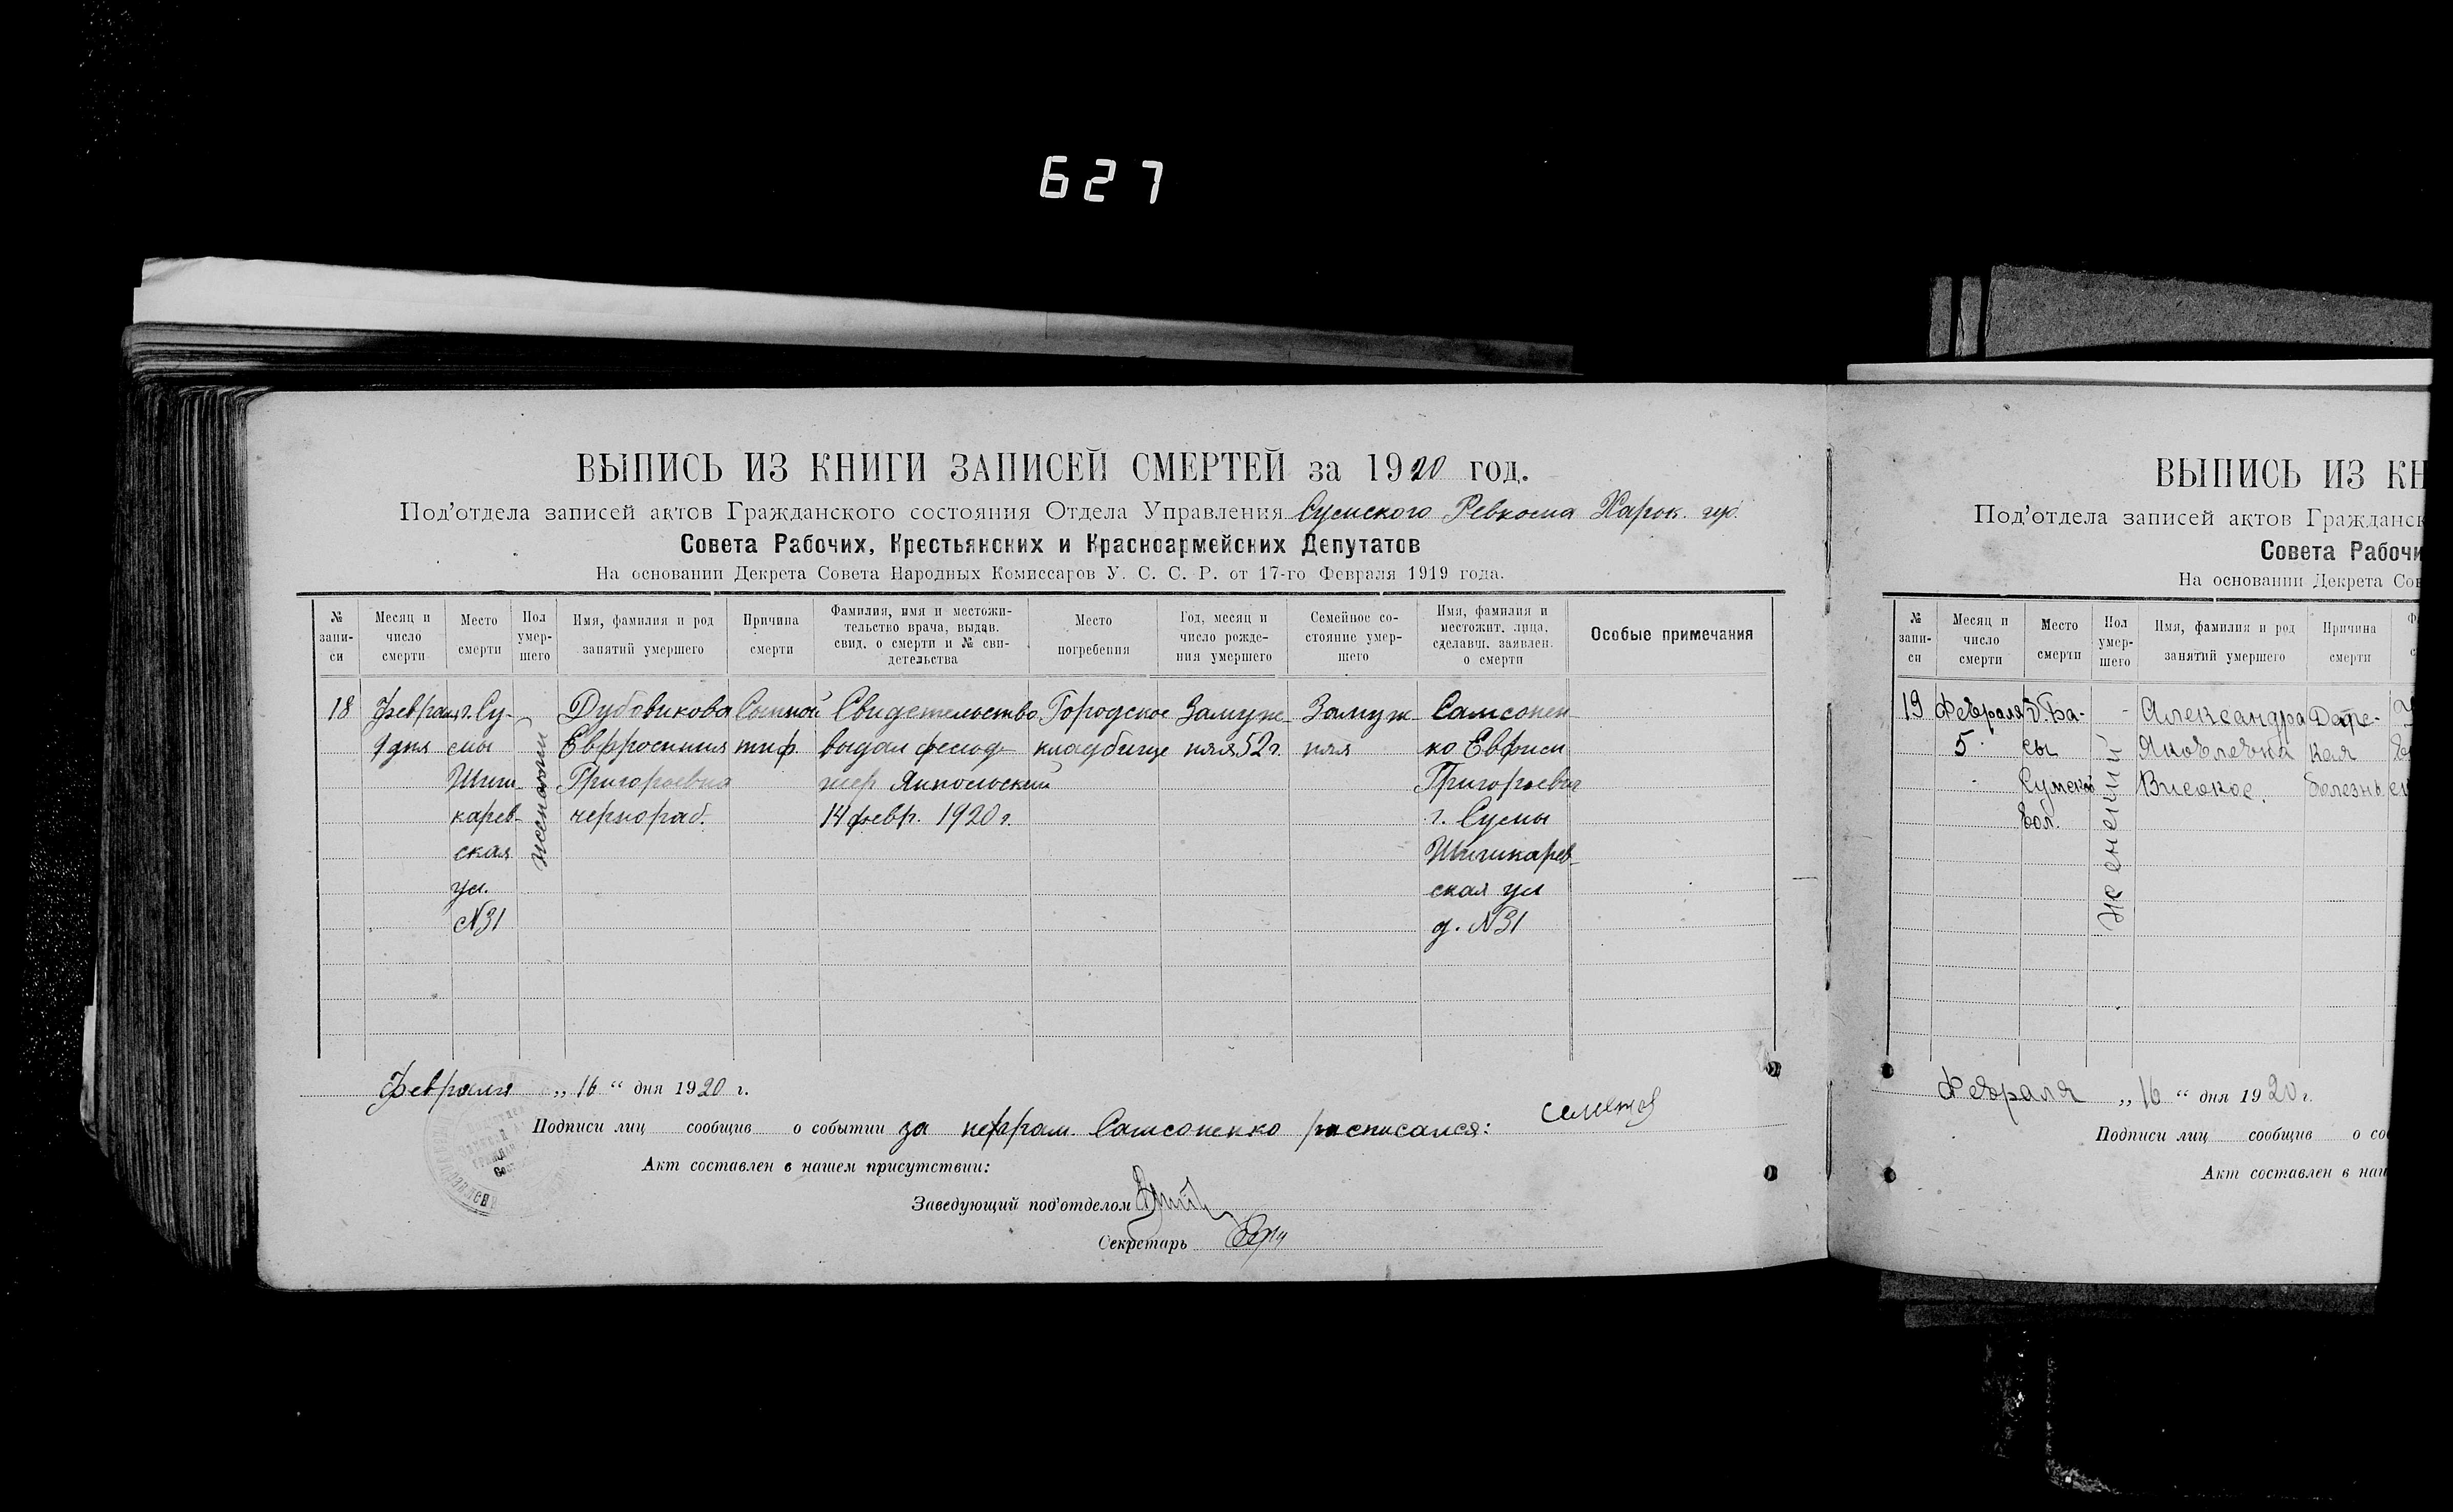 627
ВЫПИСЬ ИЗ КНИГИ ЗАПИСЕЙ СМЕРТЕЙ за 1920 год.
Под'отдела записей актов Гражданского состояния Отдела Управления Сумского Ревкома Харьк. гу.
Совета Рабочих, Крестьянских и Красноармейских Депутатов
На основании Декрета Совета Народных Комиссаров У. С. С. Р. от 17-го Февраля 1919 года.
№ записи
Месяц и число смерти
Место смерти
Пол умершего
Имя, фамилия и род занятий умершего
Причина смерти
Фамилия, имя и местожительство врача, выдав. свид. о смерти и № свидетельства
Место погребения
Год, месяц и число рождения умершего
Семейное состояние умершего
Имя, фамилия и местожит. лица, сделавш. заявлен. о смерти
Особые примечания
18
Февраля
9 дня
г. Су-
мы
Шиш-
карев-
ская
ул.
№31
женский
Дубовикова
Евфросиния
Григорьевна
чернораб.
Сыпной
тиф.
Свидетельство
выдал
14 февр. 1920 г.
Городское
кладбище
Замуж-
няя 52 г.
Замуж-
няя
Самсонен-
ко
г. Сумы
Шишкарев-
ская ул
д. №31
Февраля „ 16 “ дня 1920 г.
Подписи лиц сообщив о событии за неграм. Самсоненко расписался:
Акт составлен в нашем присутствии:
Заведующий под'отделом
Секретарь
ВЫПИСЬ ИЗ КН
Под'отдела записей актов Гражданск
Совета Рабочи
На основании Декрета Сов
№ записи
Месяц и число смерти
Место смерти
Пол умершего
Имя, фамилия и род занятий умершего
Причина смерти
19
Февраля
5
Сумской
вол.
женский
Александра
Яковлевна
болезнь
Февраля „ 16 “ дня 1920 г.
Подписи лиц сообщив о со
Акт составлен в наш